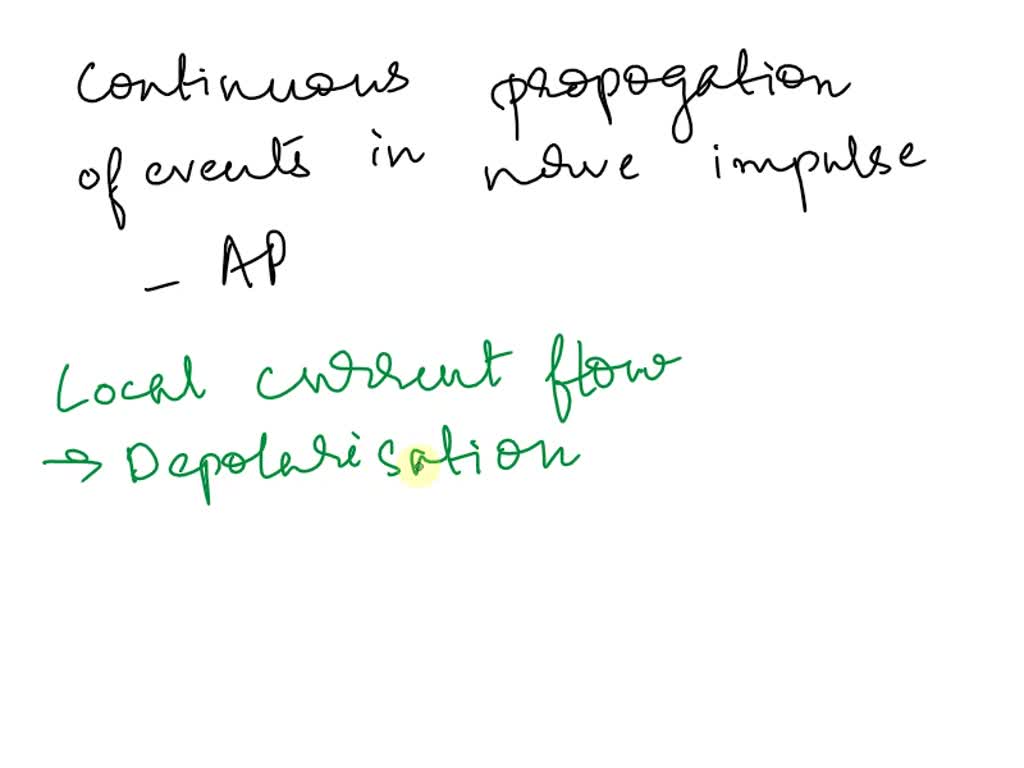 Continuous propogation
of events in nerve impulse
- AP
Local current flow
→ Depolarisation